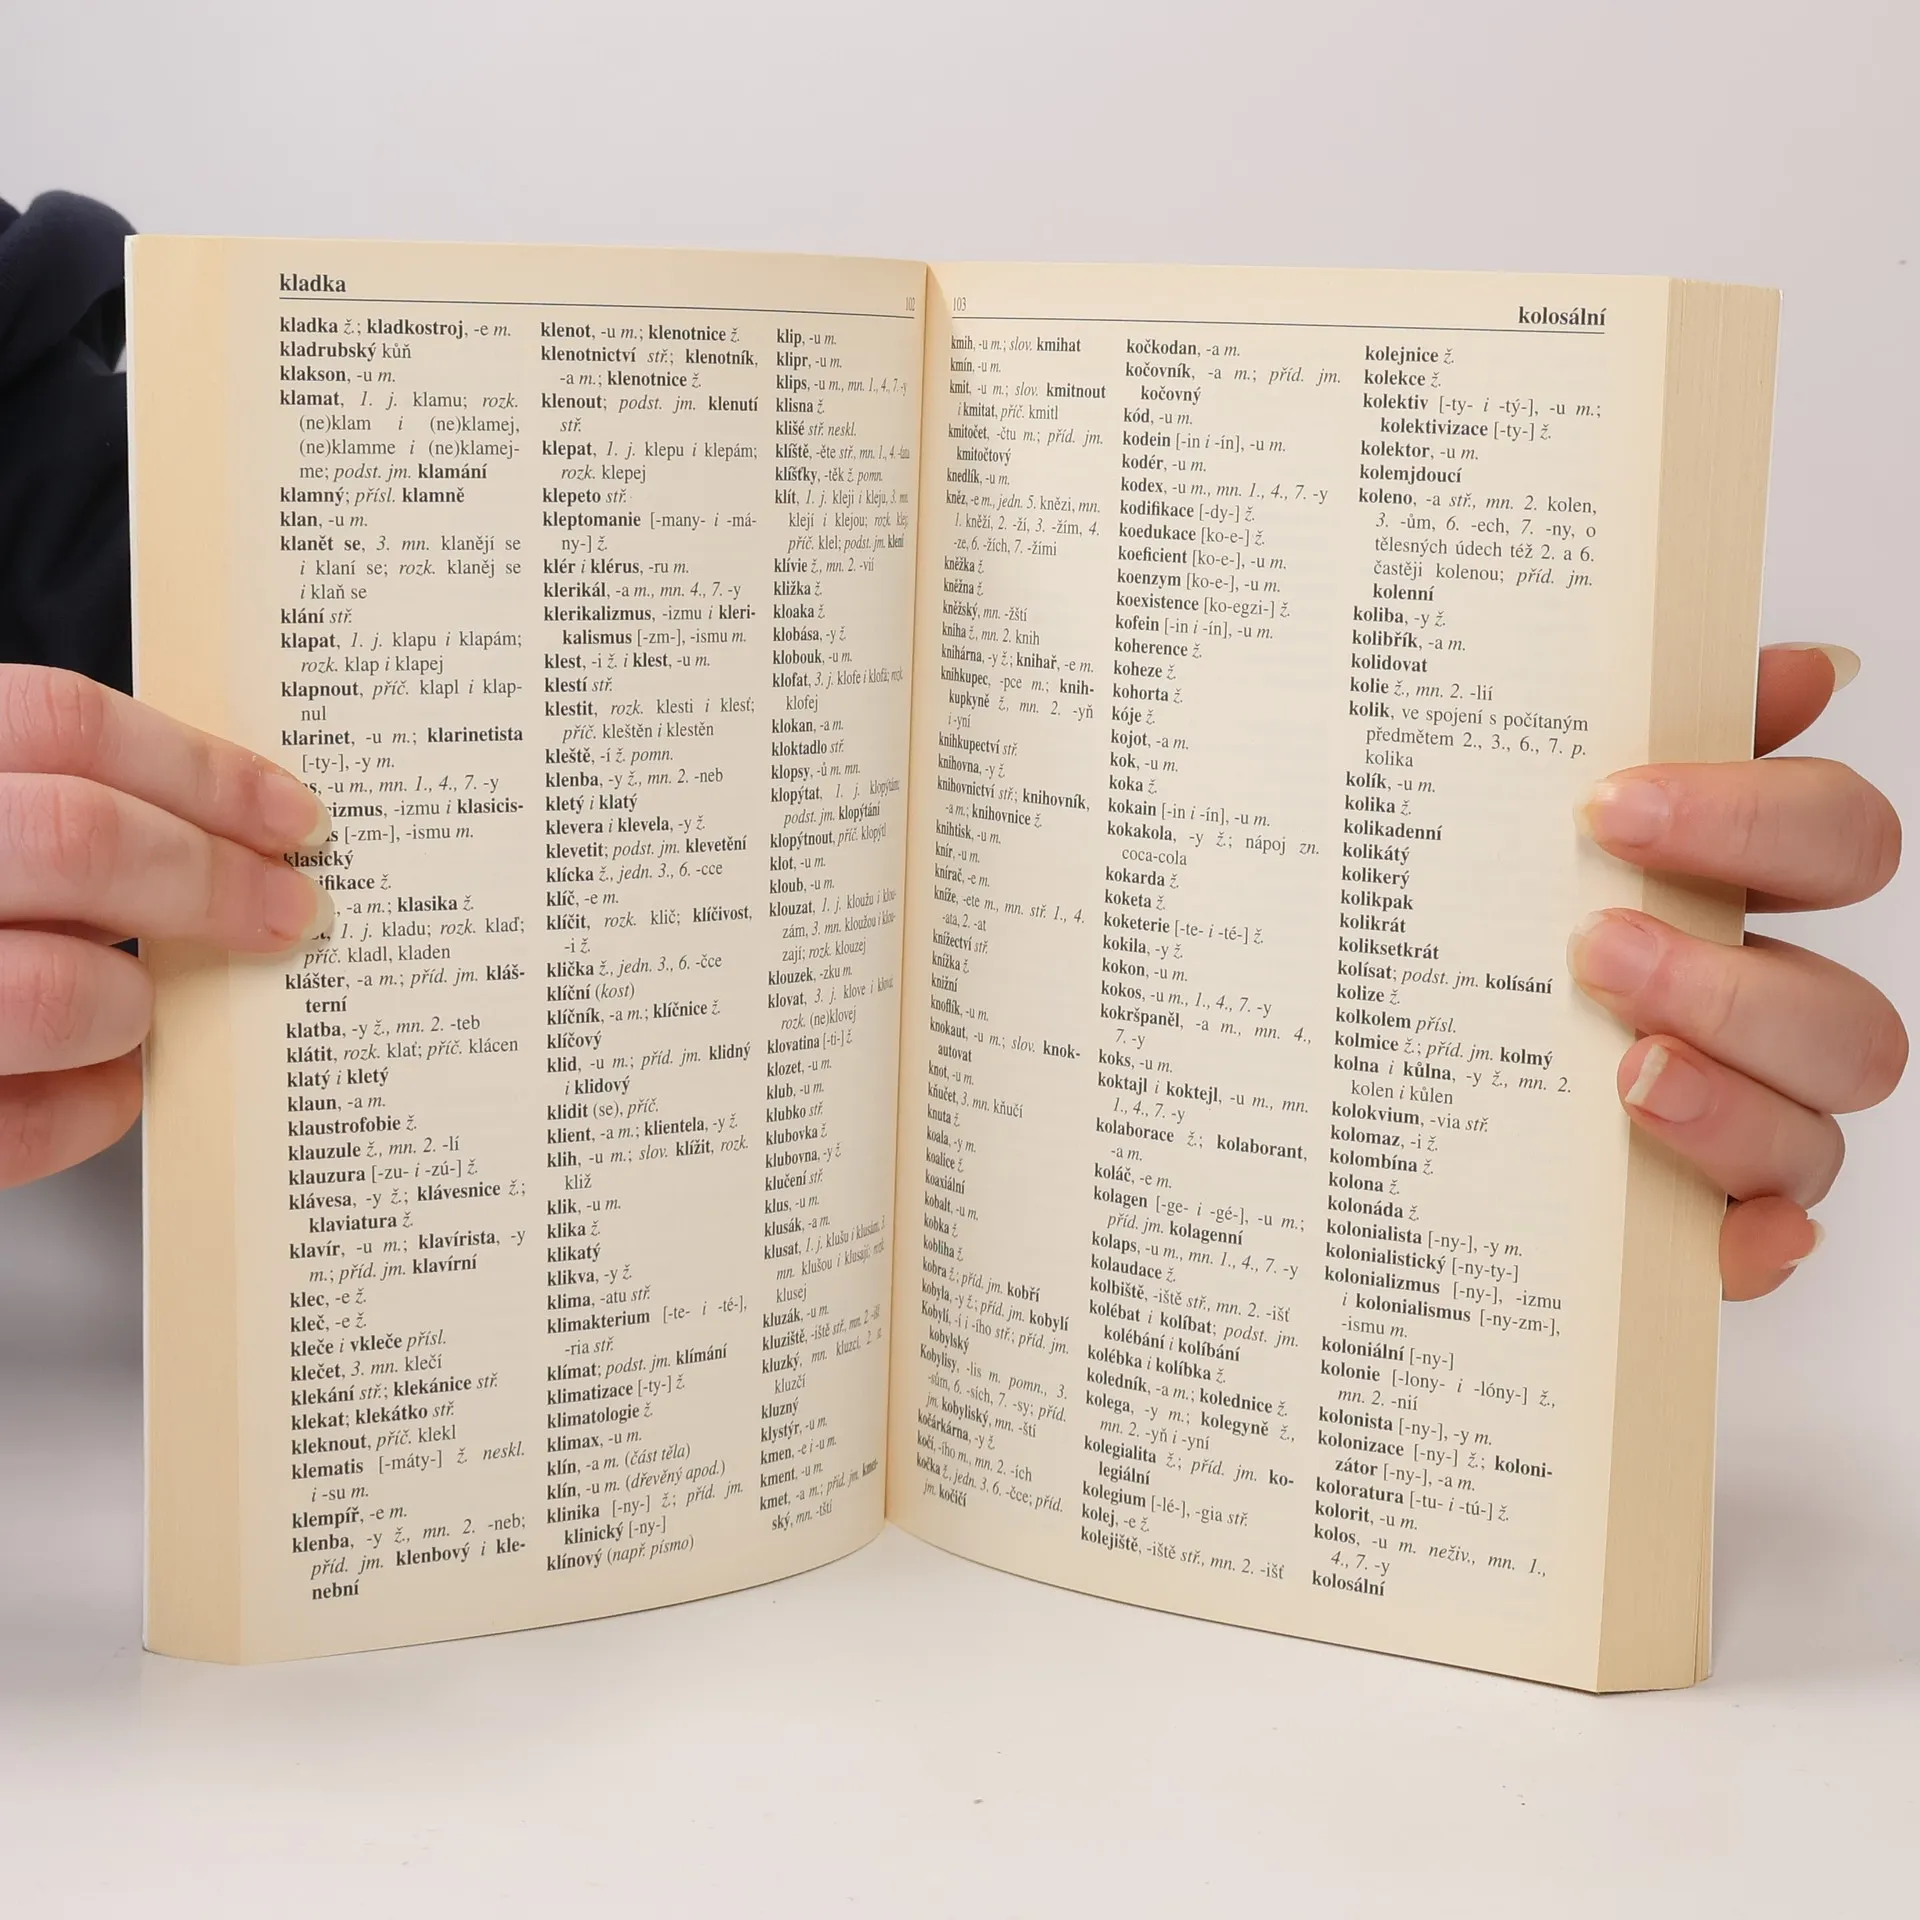 kladka
102
kladka ž.; kladkostroj, -e m.
kladrubský kůň
klakson, -u m.
klamat, 1. j. klamu; rozk.
(ne)klam i (ne)klamej,
(ne)klamme i (ne)klamej-
me; podst. jm. klamání
klamný; přísl. klamně
klan, -u m.
klanět se, 3. mn. klanějí se
i klaní se; rozk. klaněj se
i klaň se
klání stř.
klapat, 1. j. klapu i klapám;
rozk. klap i klapej
klapnout, příč. klapl i klap-
nul
klarinet, -u m.; klarinetista
[-ty-], -y m.
-u m., mn. 1., 4., 7. -y
-izmu i klasicis-
[-zm-], -ismu m.
klasický
ž.
-a m.; klasika ž.
1. j. kladu; rozk. klaď;
příč. kladl, kladen
klášter, -a m.; příd. jm. kláš-
terní
klatba, -y ž., mn. 2. -teb
klátit, rozk. klať; příč. klácen
klatý i kletý
klaun, -a m.
klaustrofobie ž.
klauzule ž., mn. 2. -lí
klauzura [-zu- i -zú-] ž.
klávesa, -y ž.; klávesnice ž.;
klaviatura ž.
klavír, -u m.; klavírista, -y
m.; příd. jm. klavírní
klec, -e ž.
kleč, -e ž.
kleče i vkleče přísl.
klečet, 3. mn. klečí
klekání stř.; klekánice stř.
klekat; klekátko stř.
kleknout, příč. klekl
klematis [-máty-] ž. neskl.
i -su m.
klempíř, -e m.
klenba, -y ž., mn. 2. -neb;
příd. jm. klenbový i kle-
nební
klenot, -u m.; klenotnice ž.
klenotnictví stř.; klenotník,
-a m.; klenotnice ž.
klenout; podst. jm. klenutí
stř.
klepat, 1. j. klepu i klepám;
rozk. klepej
klepeto stř.
kleptomanie [-many- i -má-
ny-] ž.
klér i klérus, -ru m.
klerikál, -a m., mn. 4., 7. -y
klerikalizmus, -izmu i kleri-
kalismus [-zm-], -ismu m.
klest, -i ž. i klest, -u m.
klestí stř.
klestit, rozk. klesti i klesť;
příč. kleštěn i klestěn
kleště, -í ž. pomn.
klenba, -y ž., mn. 2. -neb
kletý i klatý
klevera i klevela, -y ž.
klevetit; podst. jm. klevetění
klícka ž., jedn. 3., 6. -cce
klíč, -e m.
klíčit, rozk. klič; klíčivost,
-i ž.
klička ž., jedn. 3., 6. -čce
klíční (kost)
klíčník, -a m.; klíčnice ž.
klíčový
klid, -u m.; příd. jm. klidný
i klidový
klidit (se), příč.
klient, -a m.; klientela, -y ž.
klih, -u m.; slov. klížit, rozk.
kliž
klik, -u m.
klika ž.
klikatý
klikva, -y ž.
klima, -atu stř.
klimakterium [-te- i -té-],
-ria stř.
klímat; podst. jm. klímání
klimatizace [-ty-] ž.
klimatologie ž.
klimax, -u m.
klín, -a m. (část těla)
klín, -u m. (dřevěný apod.)
klinika [-ny-] ž.; příd. jm.
klinický [-ny-]
klínový (např. písmo)
klip, -u m.
klipr, -u m.
klips, -u m., mn. 1., 4., 7. -y
klisna ž.
klišé stř. neskl.
klíště, -ěte stř., mn. 1., 4. -ťata
klíšťky, -těk ž. pomn.
klít, 1. j. kleji i kleju, 3. mn.
klejí i klejou; rozk. klej;
příč. klel; podst. jm. klení
klívie ž., mn. 2. -vií
klížka ž.
kloaka ž.
klobása, -y ž.
klobouk, -u m.
klofat, 3. j. klofe i klofá; rozk.
klofej
klokan, -a m.
kloktadlo stř.
klopsy, -ů m. mn.
klopýtat, 1. j. klopýtám;
podst. jm. klopýtání
klopýtnout, příč. klopýtl
klot, -u m.
kloub, -u m.
klouzat, 1. j. kloužu i klou-
zám, 3. mn. kloužou i klou-
zají; rozk. klouzej
klouzek, -zku m.
klovat, 3. j. klove i klovat
rozk. (ne)klovej
klovatina [-ti-] ž.
klozet, -u m.
klub, -u m.
klubko stř.
klubovka ž.
klubovna, -y ž.
klučení stř.
klus, -u m.
klusák, -a m.
klusat, 1. j. klušu i klusám, 3.
mn. klušou i klusají; rozk.
klusej
kluzák, -u m.
kluziště, -iště stř., mn. 2. -išť
kluzký, mn. kluzcí, 2. st.
kluzčí
kluzný
klystýr, -u m.
kmen, -e i -u m.
kment, -u m.
kmet, -a m.; příd. jm. kmet-
ský, mn. -tští
103
kolosální
kmih, -u m.; slov. kmihat
kmín, -u m.
kmit, -u m.; slov. kmitnout
i kmitat, příč. kmitl
kmitočet, -čtu m.; příd. jm.
kmitočtový
knedlík, -u m.
kněz, -e m., jedn. 5. knězi, mn.
1. kněží, 2. -ží, 3. -žím, 4.
-ze, 6. -žích, 7. -žími
kněžka ž.
kněžna ž.
kněžský, mn. -žští
kniha ž., mn. 2. knih
knihárna, -y ž.; knihař, -e m.
knihkupec, -pce m.; knih-
kupkyně ž., mn. 2. -yň
i -yní
knihkupectví stř.
knihovna, -y ž.
knihovnictví stř.; knihovník,
-a m.; knihovnice ž.
knihtisk, -u m.
knír, -u m.
knírač, -e m.
kníže, -ete m., mn. stř. 1., 4.
-ata, 2. -at
knížectví stř.
knížka ž.
knižní
knoflík, -u m.
knokaut, -u m.; slov. knok-
autovat
knot, -u m.
kňučet, 3. mn. kňučí
knuta ž.
koala, -y m.
koalice ž.
koaxiální
kobalt, -u m.
kobka ž.
kobliha ž.
kobra ž.; příd. jm. kobří
kobyla, -y ž.; příd. jm. kobylí
Kobylí, -í i -ího stř.; příd. jm.
kobylský
Kobylisy, -lis m. pomn., 3.
-sům, 6. -sích, 7. -sy; příd.
jm. kobyliský, mn. -ští
kočárkárna, -y ž.
kočí, -ího m., mn. 2. -ích
kočka ž., jedn. 3. 6. -čce; příd.
jm. kočičí
kočkodan, -a m.
kočovník, -a m.; příd. jm.
kočovný
kód, -u m.
kodein [-in i -ín], -u m.
kodér, -u m.
kodex, -u m., mn. 1., 4., 7. -y
kodifikace [-dy-] ž.
koedukace [ko-e-] ž.
koeficient [ko-e-], -u m.
koenzym [ko-e-], -u m.
koexistence [ko-egzi-] ž.
kofein [-in i -ín], -u m.
koherence ž.
koheze ž.
kohorta ž.
kóje ž.
kojot, -a m.
kok, -u m.
koka ž.
kokain [-in i -ín], -u m.
kokakola, -y ž.; nápoj zn.
coca-cola
kokarda ž.
koketa ž.
koketerie [-te- i -té-] ž.
kokila, -y ž.
kokon, -u m.
kokos, -u m., 1., 4., 7. -y
kokršpaněl, -a m., mn. 4.,
7. -y
koks, -u m.
koktajl i koktejl, -u m., mn.
1., 4., 7. -y
kolaborace ž.; kolaborant,
-a m.
koláč, -e m.
kolagen [-ge- i -gé-], -u m.;
příd. jm. kolagenní
kolaps, -u m., mn. 1., 4., 7. -y
kolaudace ž.
kolbiště, -iště stř., mn. 2. -išť
kolébat i kolíbat; podst. jm.
kolébání i kolíbání
kolébka i kolíbka ž.
koledník, -a m.; kolednice ž.
kolega, -y m.; kolegyně ž.,
mn. 2. -yň i -yní
kolegialita ž.; příd. jm. ko-
legiální
kolegium [-lé-], -gia stř.
kolej, -e ž.
kolejiště, -iště stř., mn. 2. -išť
kolejnice ž.
kolekce ž.
kolektiv [-ty- i -tý-], -u m.;
kolektivizace [-ty-] ž.
kolektor, -u m.
kolemjdoucí
koleno, -a stř., mn. 2. kolen,
3. -ům, 6. -ech, 7. -ny, o
tělesných údech též 2. a 6.
častěji kolenou; příd. jm.
kolenní
koliba, -y ž.
kolibřík, -a m.
kolidovat
kolie ž., mn. 2. -lií
kolik, ve spojení s počítaným
předmětem 2., 3., 6., 7. p.
kolika
kolík, -u m.
kolika ž.
kolikadenní
kolikátý
kolikerý
kolikpak
kolikrát
koliksetkrát
kolísat; podst. jm. kolísání
kolize ž.
kolkolem přísl.
kolmice ž.; příd. jm. kolmý
kolna i kůlna, -y ž., mn. 2.
kolen i kůlen
kolokvium, -via stř.
kolomaz, -i ž.
kolombína ž.
kolona ž.
kolonáda ž.
kolonialista [-ny-], -y m.
kolonialistický [-ny-ty-]
kolonializmus [-ny-], -izmu
i kolonialismus [-ny-zm-],
-ismu m.
koloniální [-ny-]
kolonie [-lony- i -lóny-] ž.,
mn. 2. -nií
kolonista [-ny-], -y m.
kolonizace [-ny-] ž.; koloni-
zátor [-ny-], -a m.
koloratura [-tu- i -tú-] ž.
kolorit, -u m.
kolos, -u m. neživ., mn. 1.,
4., 7. -y
kolosální